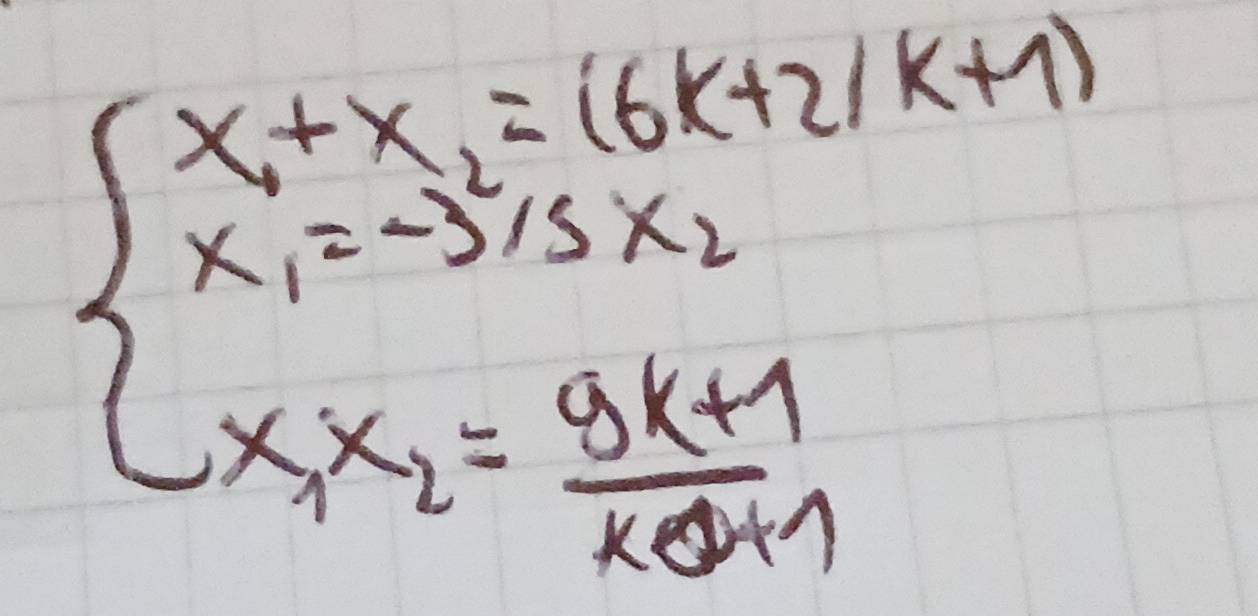 x₁+x₂=(6k+2/k+1)
x₁=-3/5x₂
x₁x₂=
9k+1
k+1